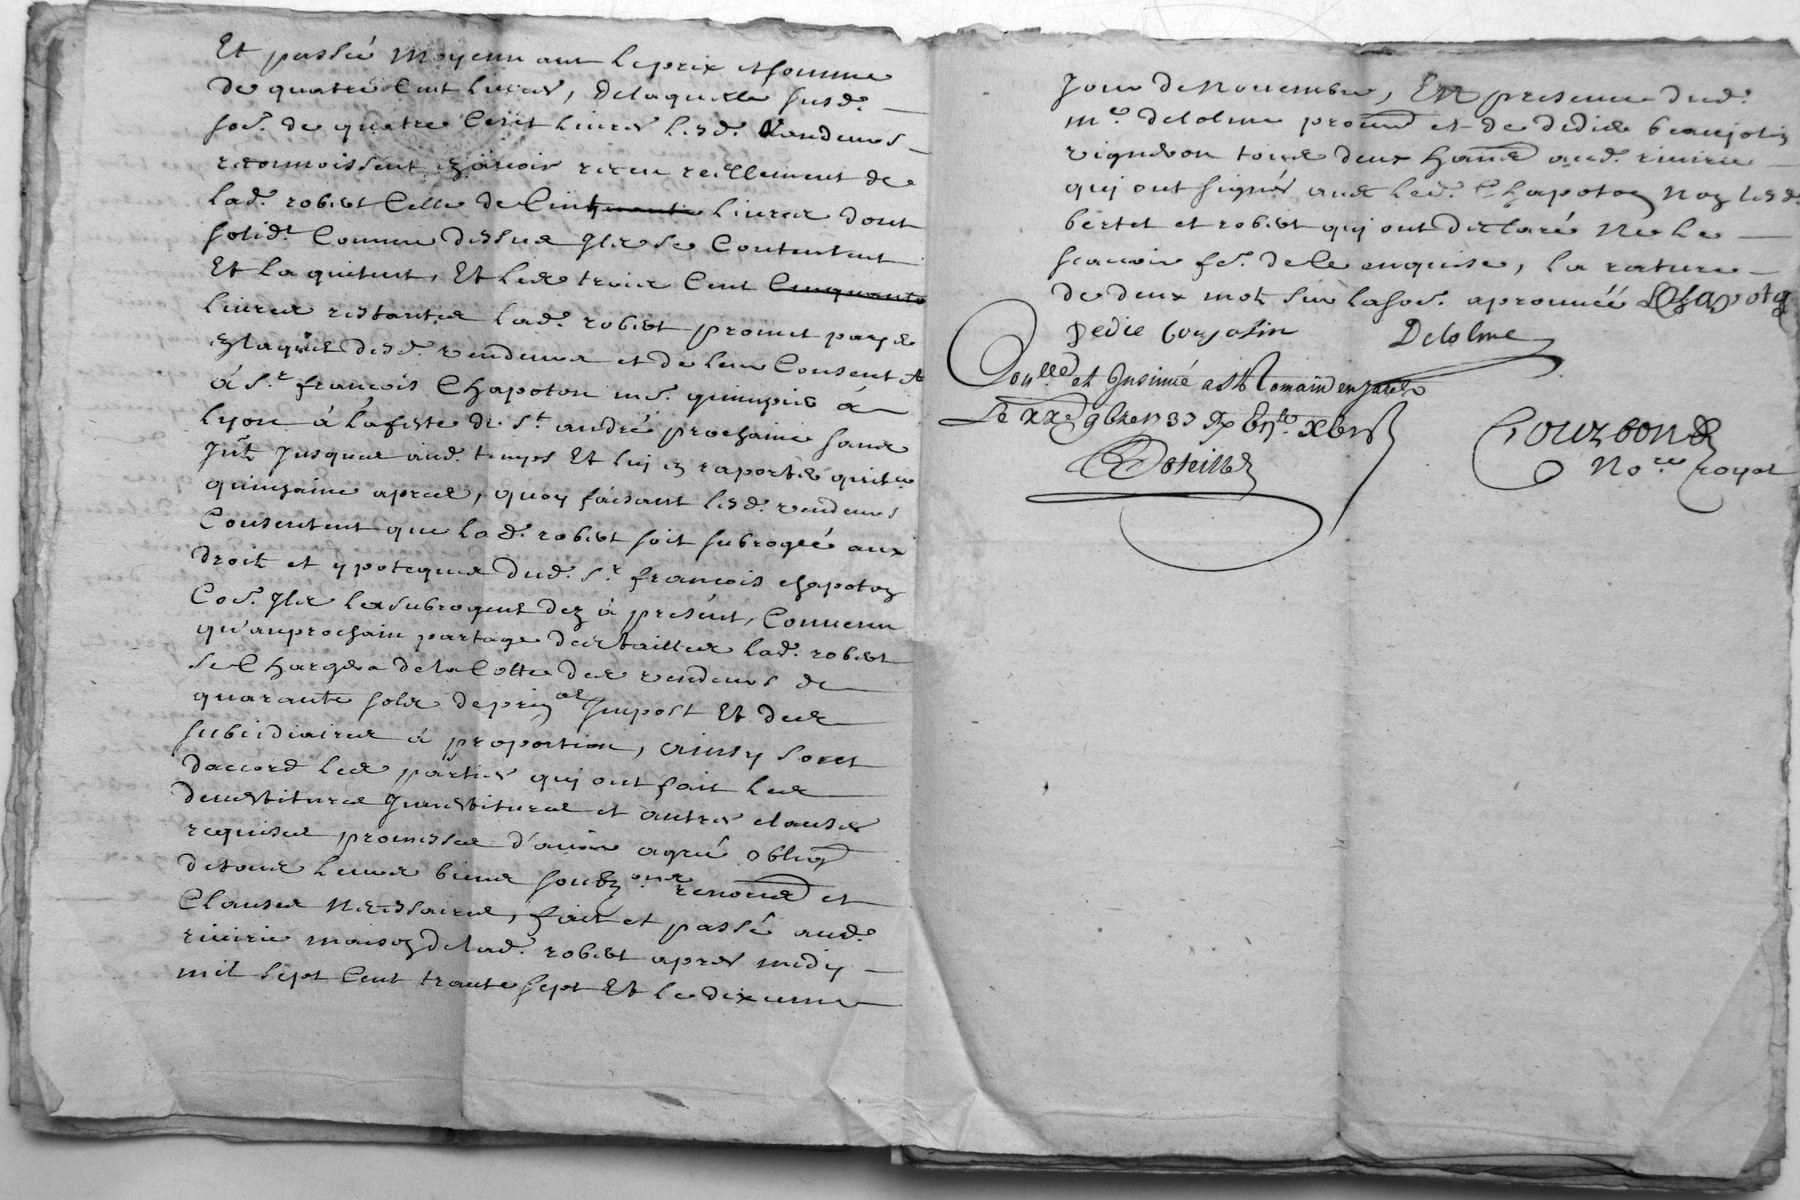 Et passée moyennant le prix et somme
de quatre Cent livres, de laquelle susd.
So.e de quatre Cent livres lesd. Vendeurs
reconnoissent avoir receu reellement de
lad. robert Celle de Cent livres dont
solid.t Comme dessus Ils se Contentent
Et la quitent, Et les trois Cent Cinquante
livres restantes lad. robert promet payer
à l'aquit desd. vendeurs et de leur Consent.t
à S.r francois Chapoton m.d quinquié à
Lyon à la feste de S.t andré prochaine sans
Jnt. Jusques aud. temps Et luy en raporter quitce
quinzaine apres, quoy faisant lesd. vendeurs
Consentent que lad. robert soit subrogée aux
droit et ypoteques dud. S.r francois chapoton
Co.e Ils la subrogent dez à présent, Convenu
qu'au prochain partage des tailles lad. robert
se Chargera de la Cotte des vendeurs de
quarante sols de prin.al Impost Et des
subcidiaires à proportion, ainsy sont
daccord les parties qui ont fait les
devestitures Investitures et autres clauses
requises promesses d'avoir agréé oblig
de tous leurs biens soubz.ons renond et
Clauses necessaires, fait et passé aud.
riverie maison de lad. robert apres midy
mil sept Cent trante sept Et le dixieme
Jour de Novembre, En presence dud.
m.e delolme et de didier beaujolin
vigneron tous deux aud. riverie
qui ont signés avec led. Chapoton Non lesd.
bertet et robert qui ont declaré Ne le
scavoir fe. de ce enquise, la rature
de deux mots sur la So.e aprouvéé Chapoton
Dedie boujolin Delolme
Con.llé et Insinué a St Romain en Jarets
Le xxe 9bre 1737
Bourbon
No.re royal